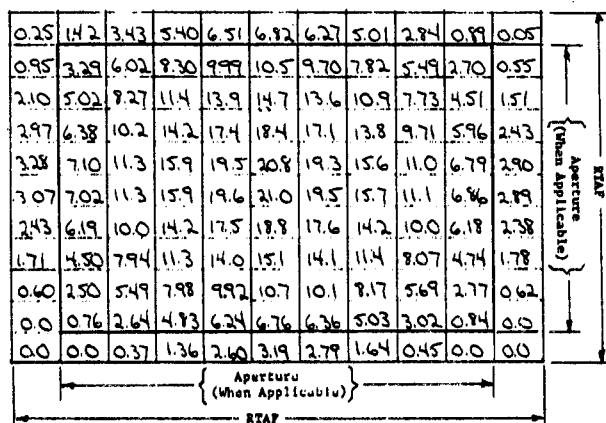 0.25 1.42 3.43 5.40 6.51 6.82 6.27 5.01 2.84 0.89 0.05
0.95 3.29 6.02 8.30 9.99 10.5 9.70 7.82 5.49 2.70 0.55
2.10 5.02 8.27 11.4 13.9 14.7 13.6 10.9 7.73 4.51 1.51
2.97 6.38 10.2 14.2 17.4 18.4 17.1 13.8 9.71 5.96 2.43
3.28 7.10 11.3 15.9 19.5 20.8 19.3 15.6 11.0 6.79 2.90
3.07 7.02 11.3 15.9 19.6 21.0 19.5 15.7 11.1 6.86 2.89
2.43 6.19 10.0 14.2 17.5 18.8 17.6 14.2 10.0 6.18 2.38
1.71 4.50 7.94 11.3 14.0 15.1 14.1 11.4 8.07 4.74 1.78
0.60 2.50 5.49 7.98 9.92 10.7 10.1 8.17 5.69 2.77 0.62
0.0 0.76 2.64 4.83 6.24 6.76 6.36 5.03 3.02 0.84 0.0
0.0 0.0 0.37 1.36 2.60 3.19 2.79 1.64 0.45 0.0 0.0
Aperture
(When Applicable)
RTAF
Aperture
(When Applicable)
RTAF